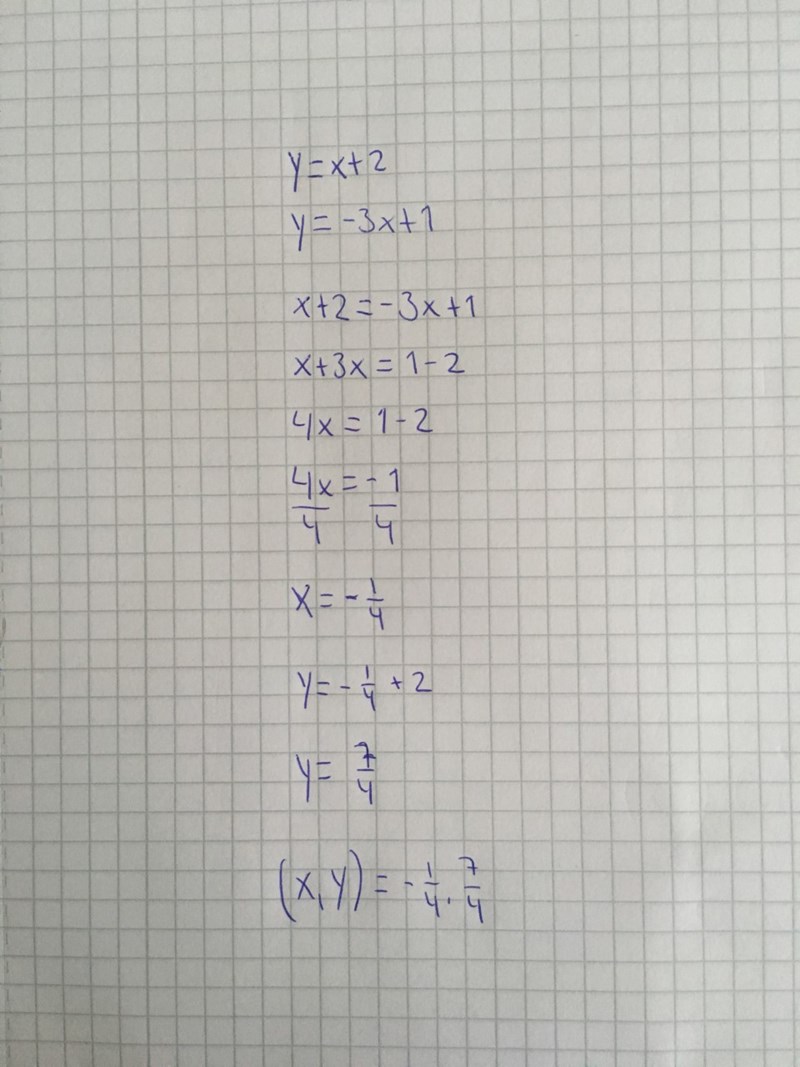 y=x+2
y=-3x+1
x+2=-3x+1
x+3x=1-2
4x=1-2
4x/4=-1/4
x=-1/4
y=-1/4+2
y=7/4
(x,y)=-1/4.7/4